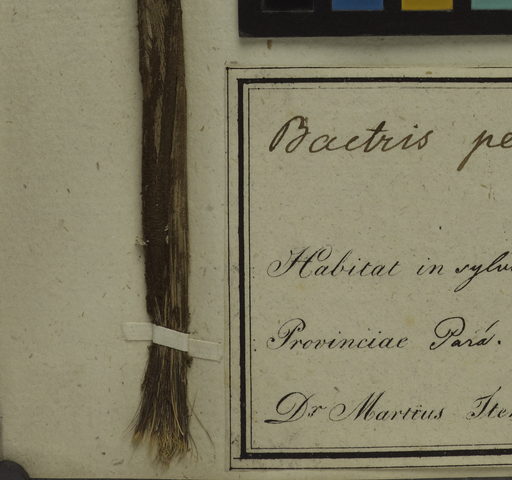 Bactris pe
Habitat in sylv
Provinciae Pará.
Dr Martius Iter